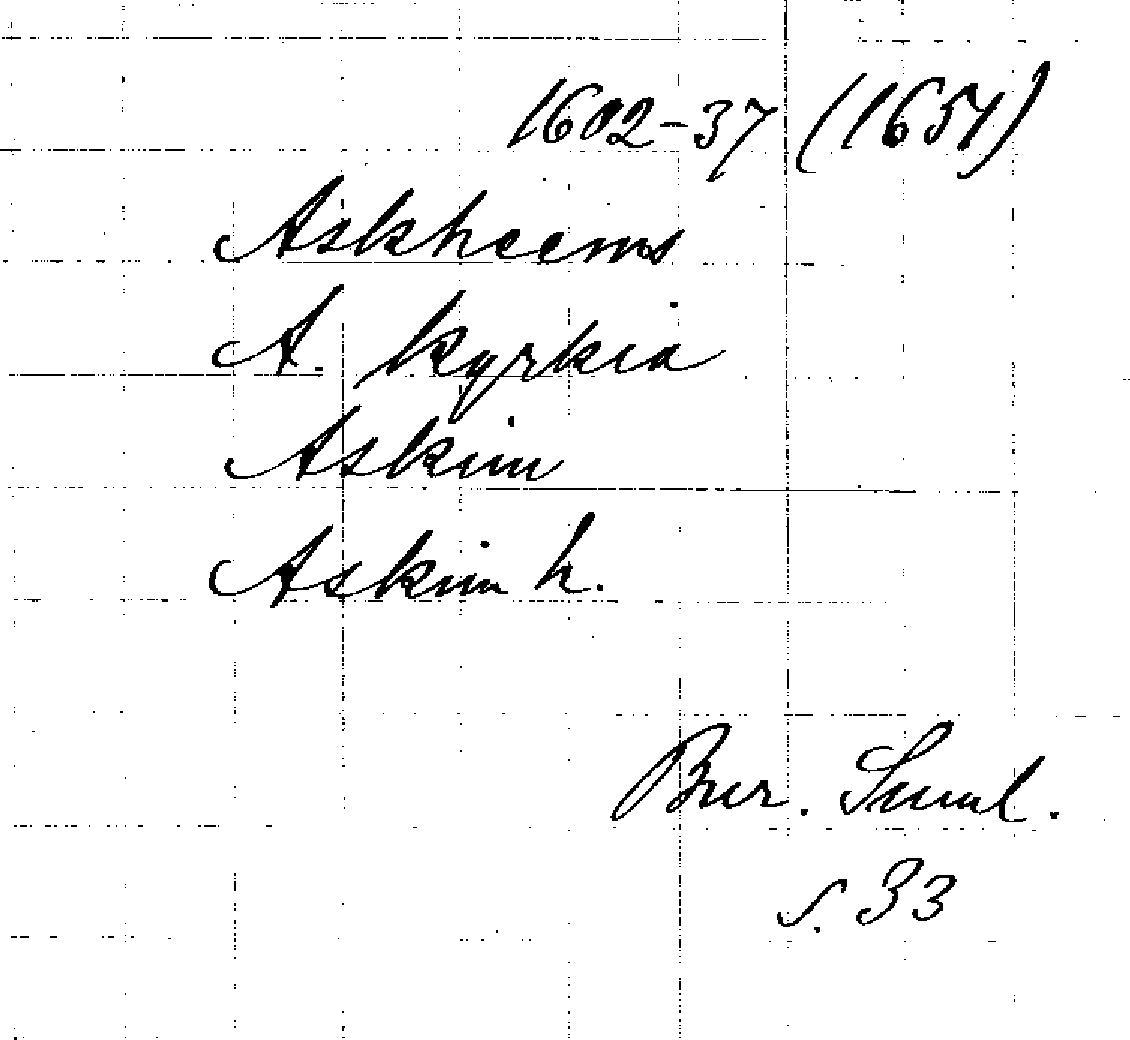 1602-37 (1651)
Askheems
A. kyrkia
Askim
Askim h.
Bur. Suml.
s. 33